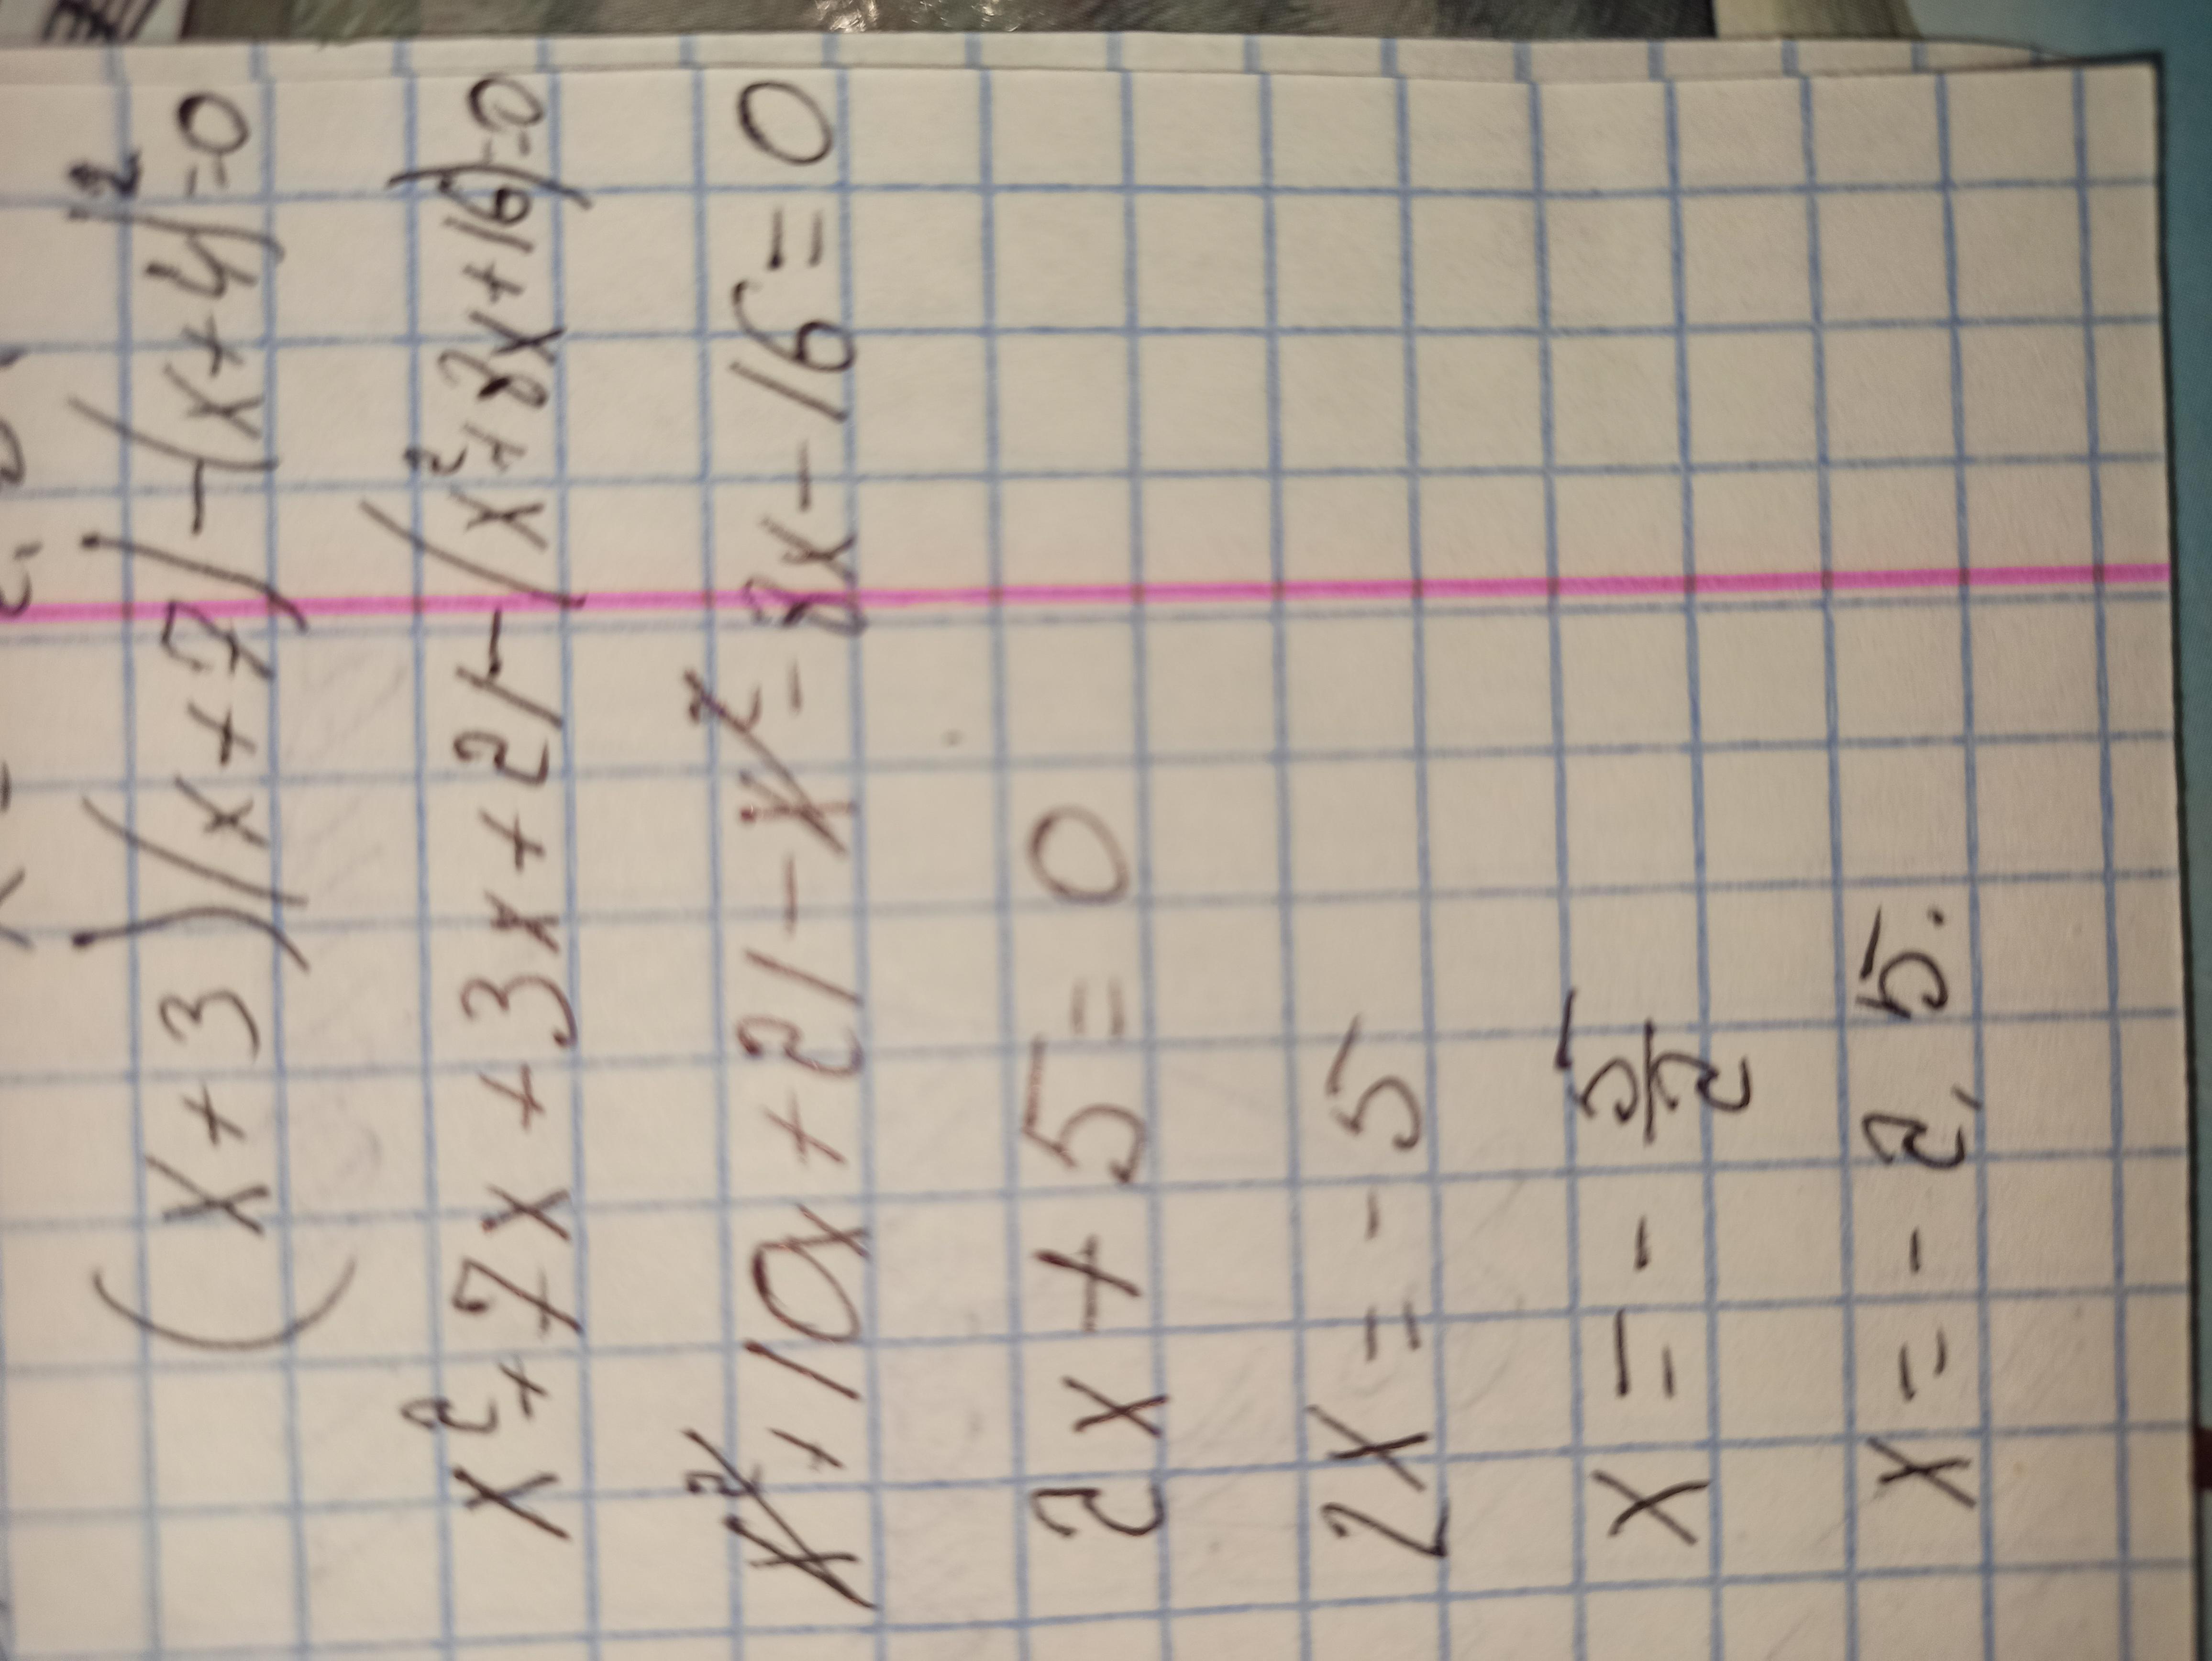 (x+3)(x+7)-(x+4)²=0
x²+7x+3x+21-(x²+8x+16)=0
x²+10x+21-x²-8x-16=0
2x+5=0
2x=-5
x=-5/2
x=-2,5.